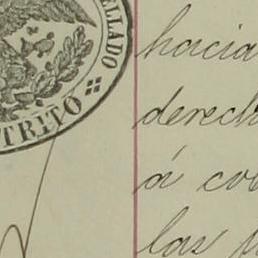 ELLADO
TRITO
hacia
derech
á co
las